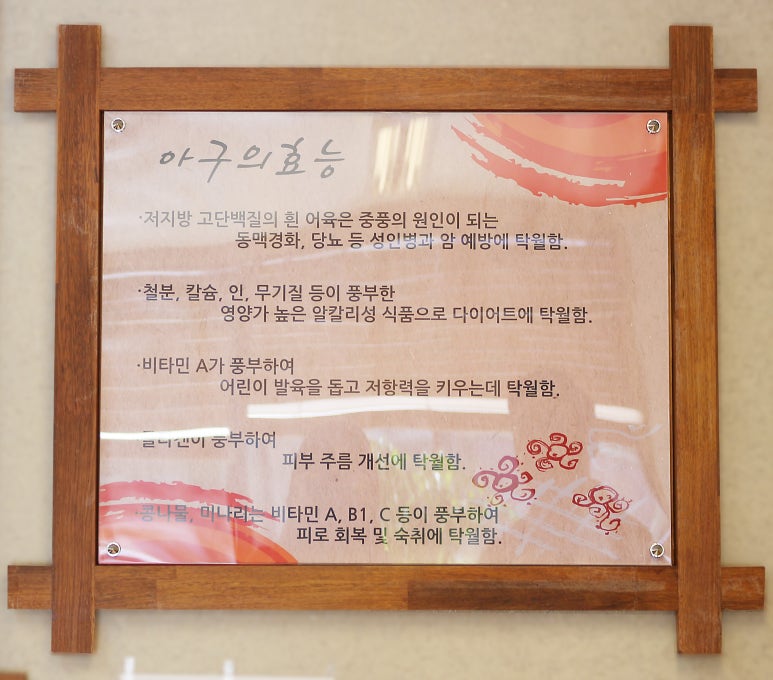 아구의효능
·저지방 고단백질의 흰 어육은 중풍의 원인이 되는
동맥경화, 당뇨 등 성인병과 암 예방에 탁월함.
·철분, 칼슘, 인, 무기질 등이 풍부한
영양가 높은 알칼리성 식품으로 다이어트에 탁월함.
·비타민 A가 풍부하여
어린이 발육을 돕고 저항력을 키우는데 탁월함.
콜라겐이 풍부하여
피부 주름 개선에 탁월함.
·콩나물, 미나리는 비타민 A, B1, C 등이 풍부하여
피로 회복 및 숙취에 탁월함.